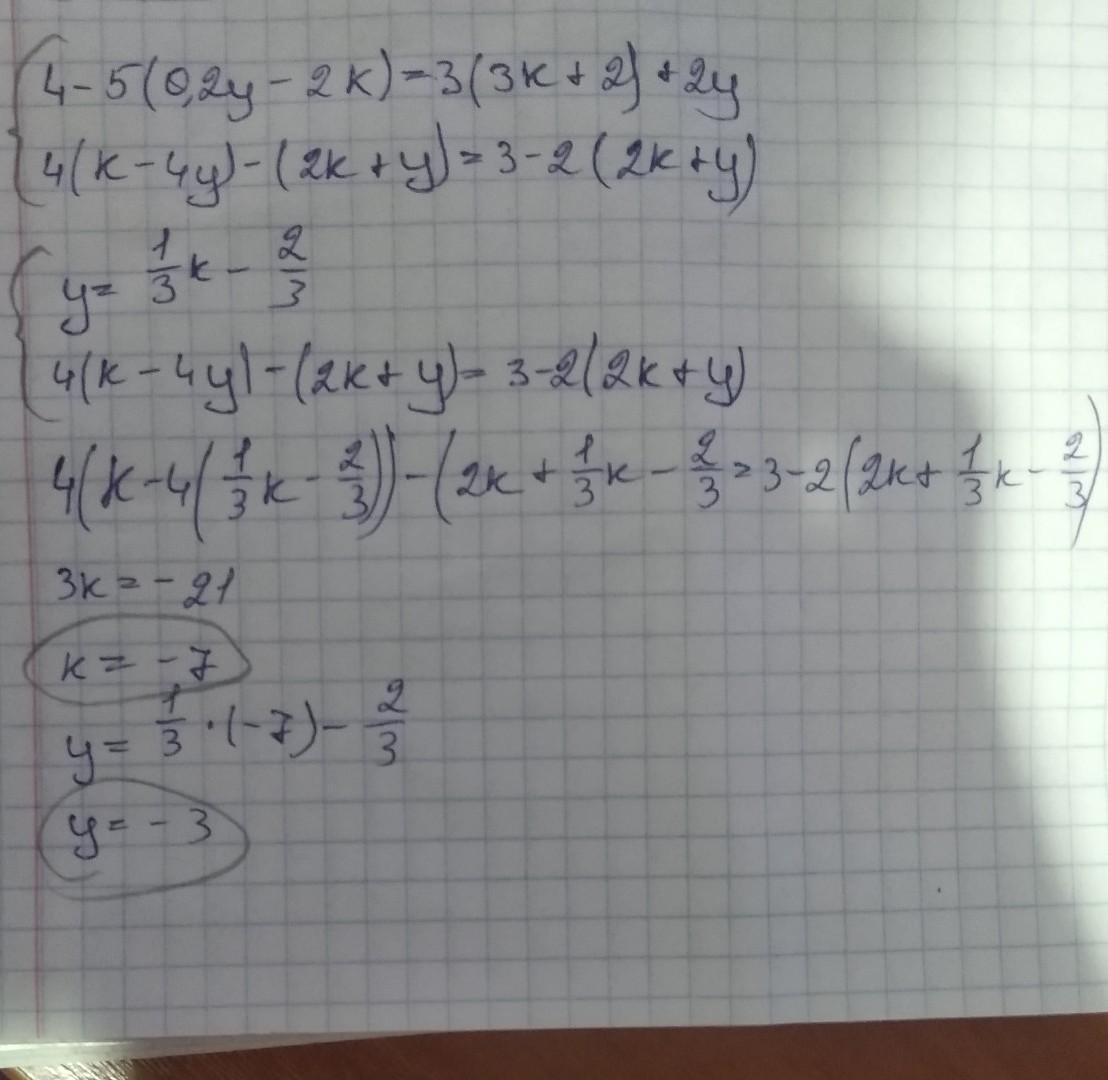 4-5(0,2y-2k)=3(3k+2)+2y
4(k-4y)-(2k+y)=3-2(2k+y)
y=1/3k-2/3
4(k-4y)-(2k+y)=3-2(2k+y)
4(k-4(1/3k-2/3))-(2k+1/3k-2/3=3-2(2k+1/3k-2/3)
3k=-21
k=-7
y=1/3·(-7)-2/3
y=-3